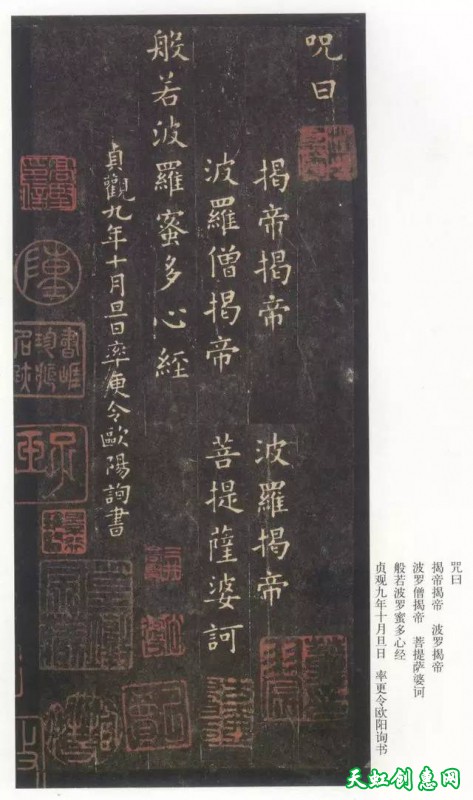 咒曰
揭帝揭帝 波羅揭帝
波羅僧揭帝 菩提薩婆訶
般若波羅蜜多心經
貞觀九年十月旦日率更令歐陽詢書
咒曰
揭帝揭帝 波罗揭帝
波罗僧揭帝 菩提萨婆诃
般若波罗蜜多心经
贞观九年十月旦日 率更令欧阳询书
天虹创惠网